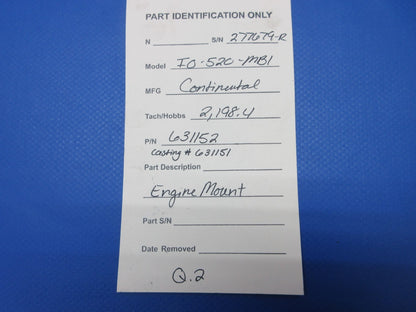 PART IDENTIFICATION ONLY
N S/N 277679-R
Model IO-520-MB1
MFG Continental
Tach/Hobbs 2,198.4
P/N 631152
Casting # 631151
Part Description
Engine Mount
Part S/N
Date Removed
Q.2